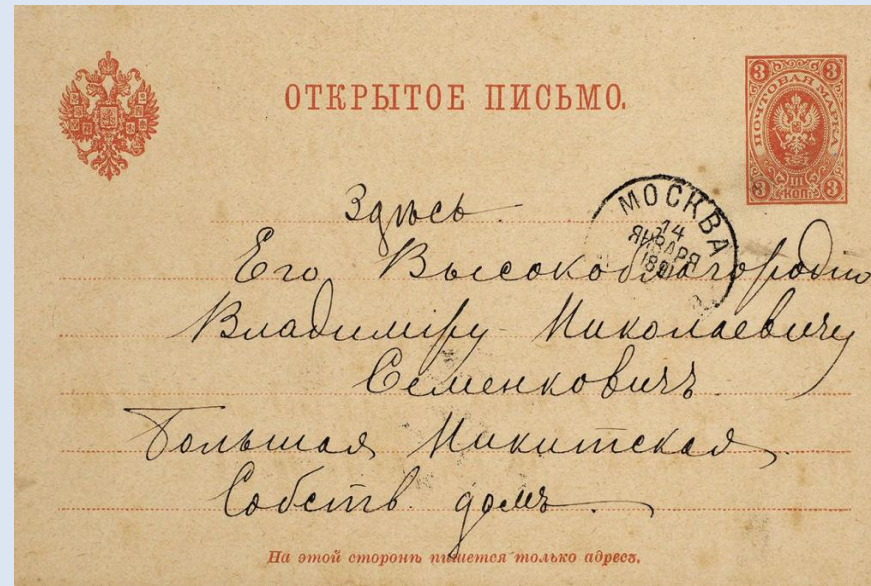 ОТКРЫТОЕ ПИСЬМО.
3 3
ПОЧТОВАЯ МАРКА
3 III 3
КОП.
МОСКВА
14
ЯНВАРЯ
1891
Здѣсь.
Его Высокоблагородію
Владиміру Николаевичу
Семенковичъ
Большая Никитская
Собств. домъ.
На этой сторонѣ пишется только адресъ.